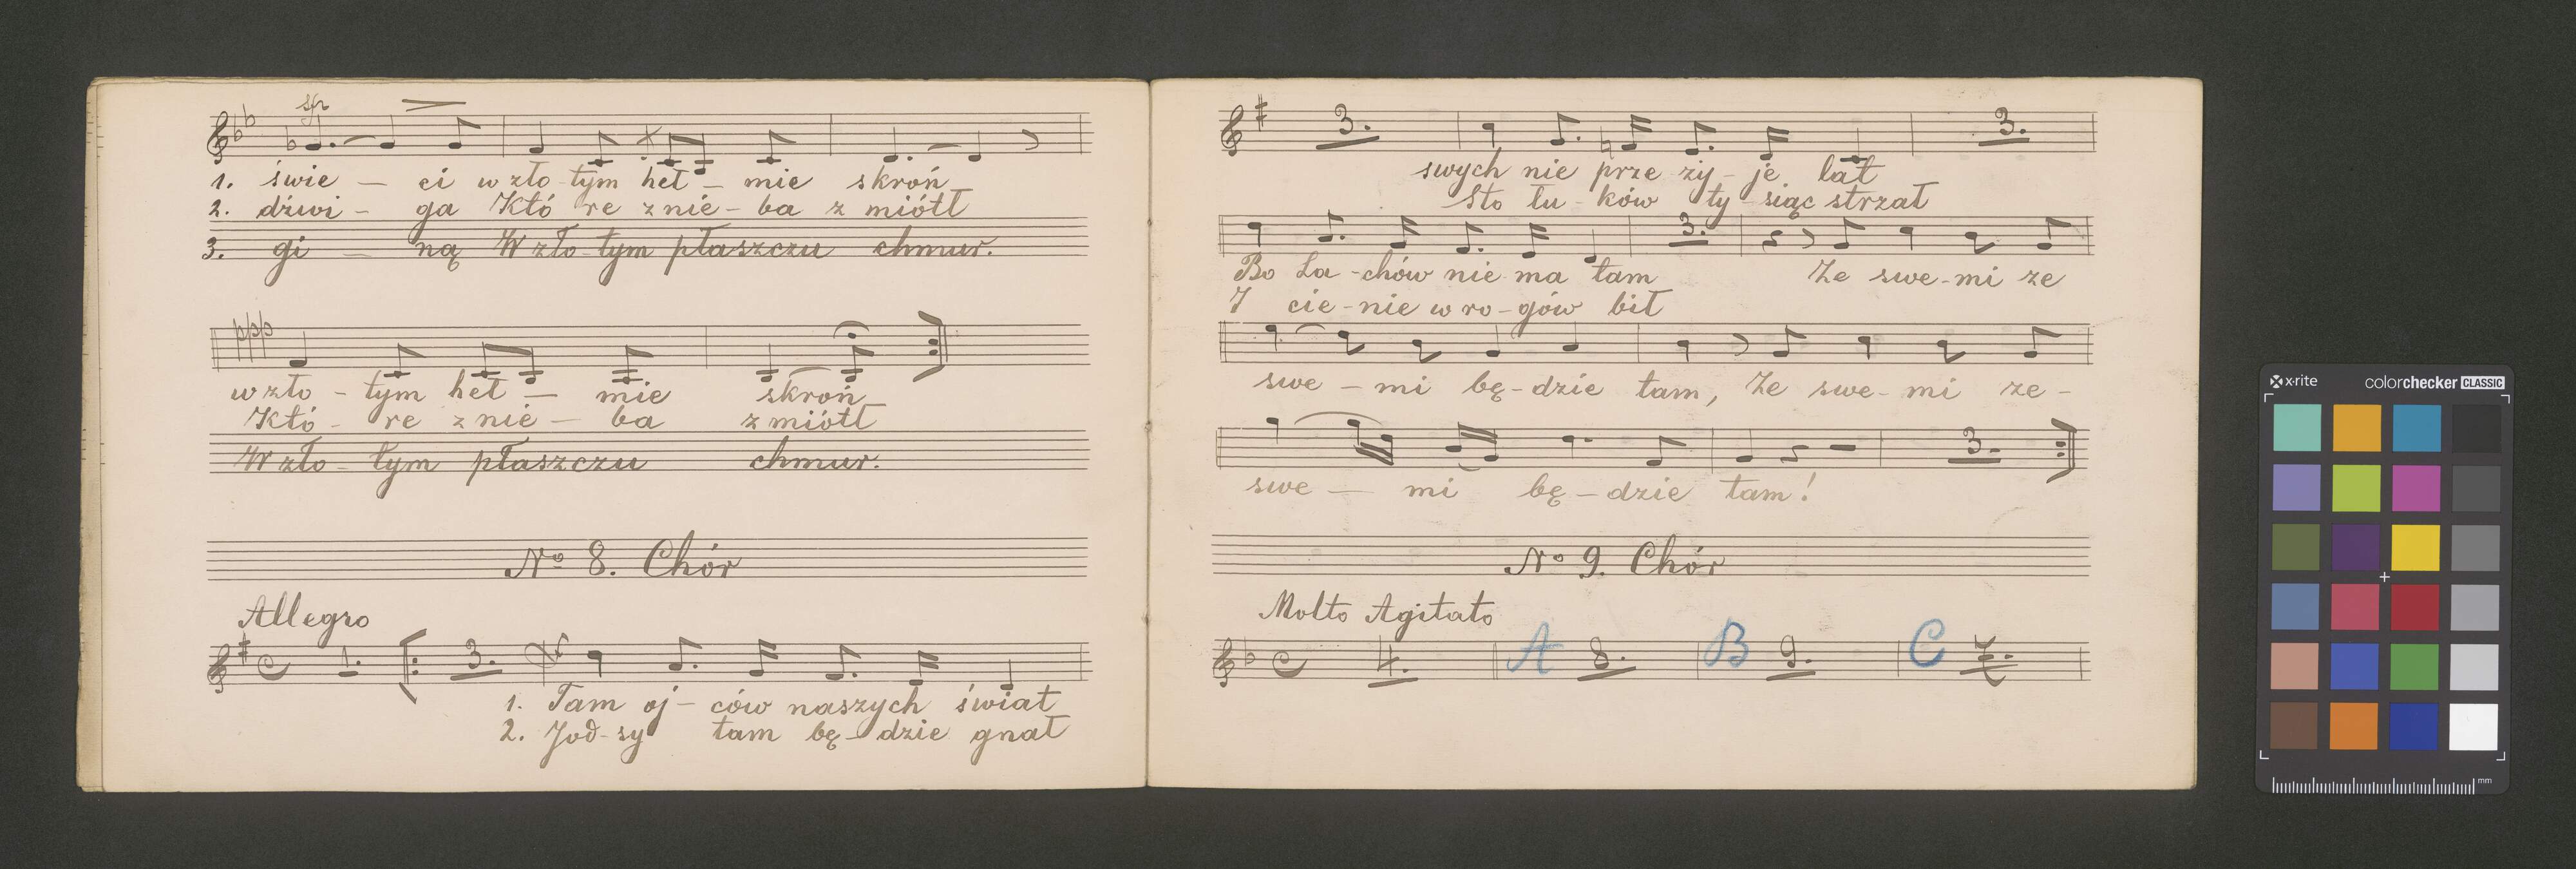 sfp
1. świe — ci w zło-tym heł — mie skroń
2. dźwi — ga Któ re z nie — ba z miótł
3. gi — ną W zło-tym płaszczu chmur.
w zło - tym heł — mie skroń
Któ - re z nie — ba z miótł
W zło - tym płaszczu chmur.
No 8. Chór
Allegro
1. 3.
1. Tam oj - ców naszych świat
2. Jod-sy tam bę - dzie gnał
3. 3.
swych nie prze ży - je lat
Sto łu - ków ty - siąc strzał
3.
Bo La - chów nie ma tam Ze swe - mi ze
I cie - nie w ro - gów bił
swe — mi bę - dzie tam, Ze swe - mi ze -
3.
swe — mi bę - dzie tam!
No 9. Chór
Molto Agitato
4. A 8. B 9. C 7.
x-rite colorchecker CLASSIC
mm